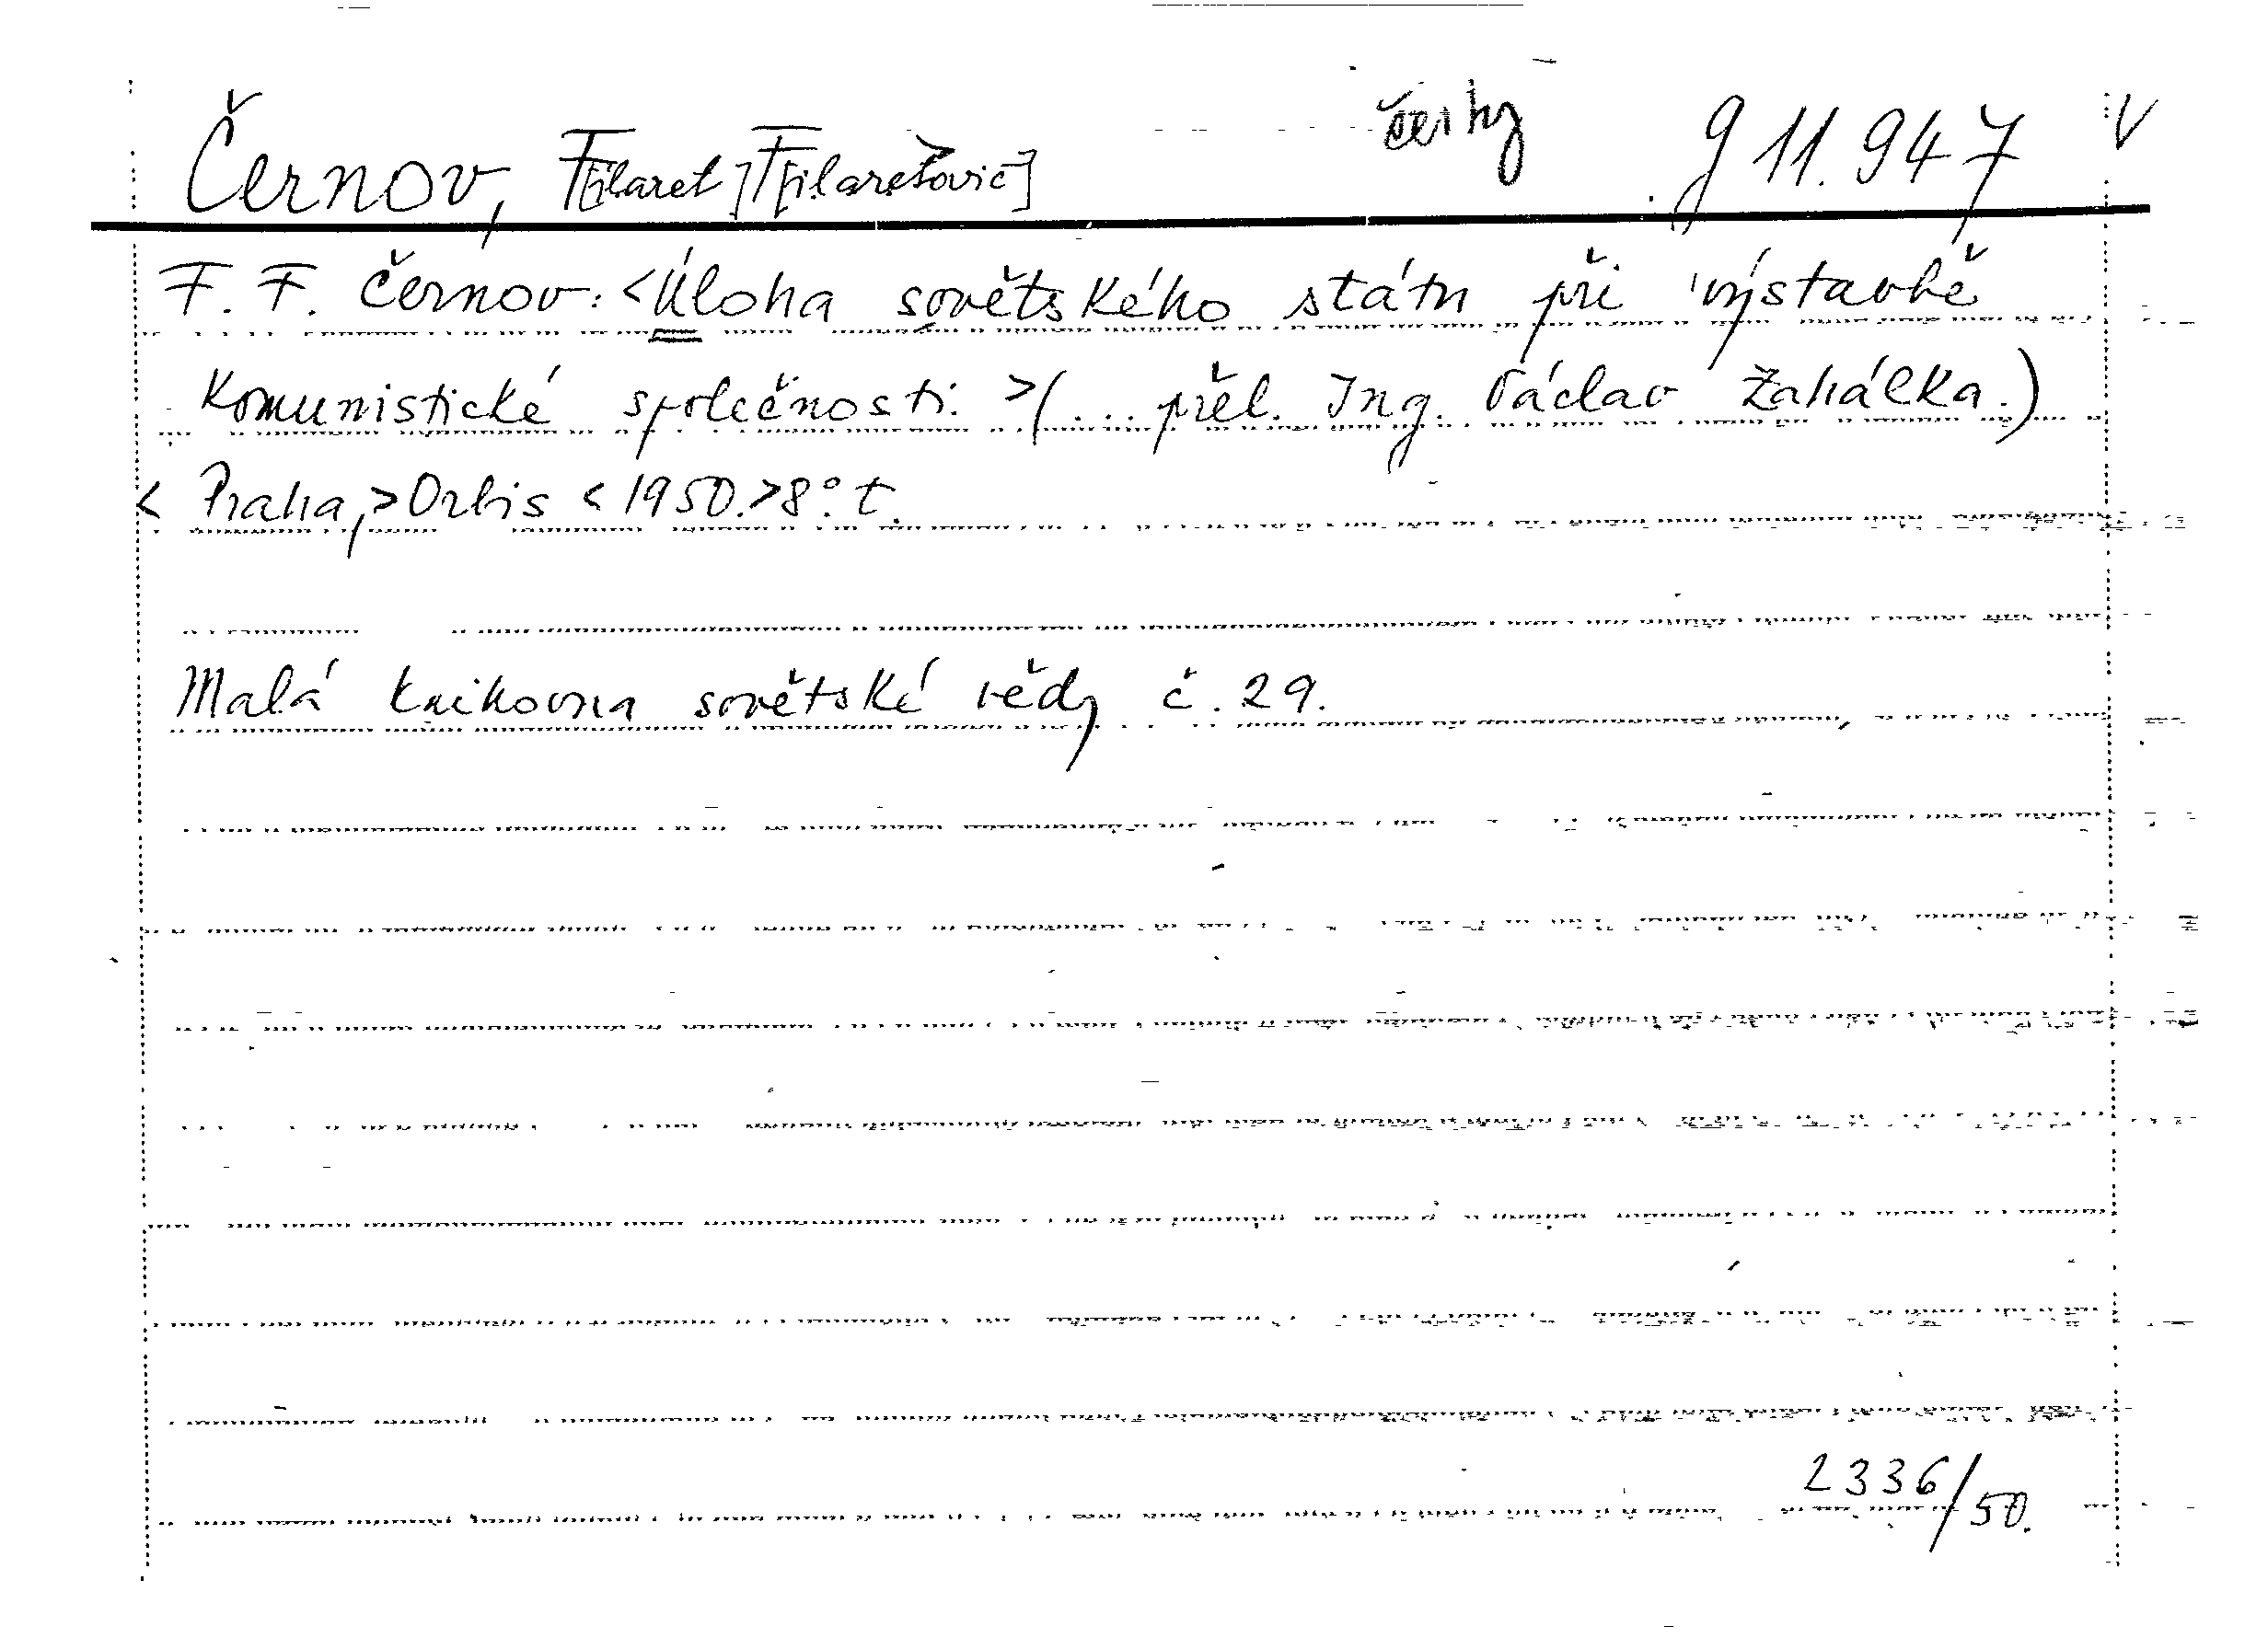 Černov, F[ilaret] F[ilaretovič] česky g 11.947 V
F. F. Černov: <Úloha sovětského státu při výstavbě
komunistické společnosti. >(... přel. Ing. Václav Zahálka.)
< Praha,> Orbis < 1950.>8°. t.
Malá knihovna sovětské vědy č. 29.
2336/50.